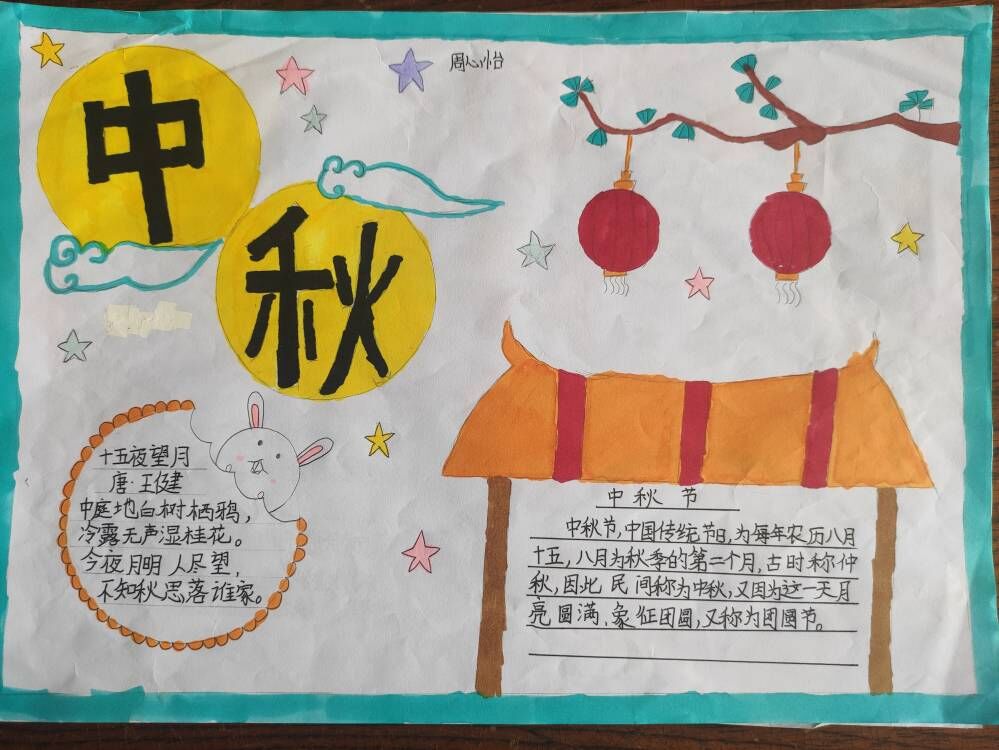 中
秋
周心怡
十五夜望月
唐·王健
中庭地白树栖鸦，
冷露无声湿桂花。
今夜月明人尽望，
不知秋思落谁家。
中秋节
中秋节，中国传统节日，为每年农历八月
十五，八月为秋季的第二个月，古时称仲
秋，因此民间称为中秋，又因为这一天月
亮圆满，象征团圆，又称为团圆节。